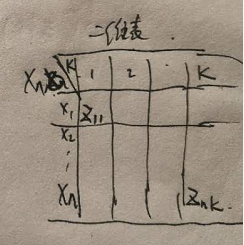 二维表
Xn K 1 2 K
X1 Z11
X2
⋮
Xn ZnK